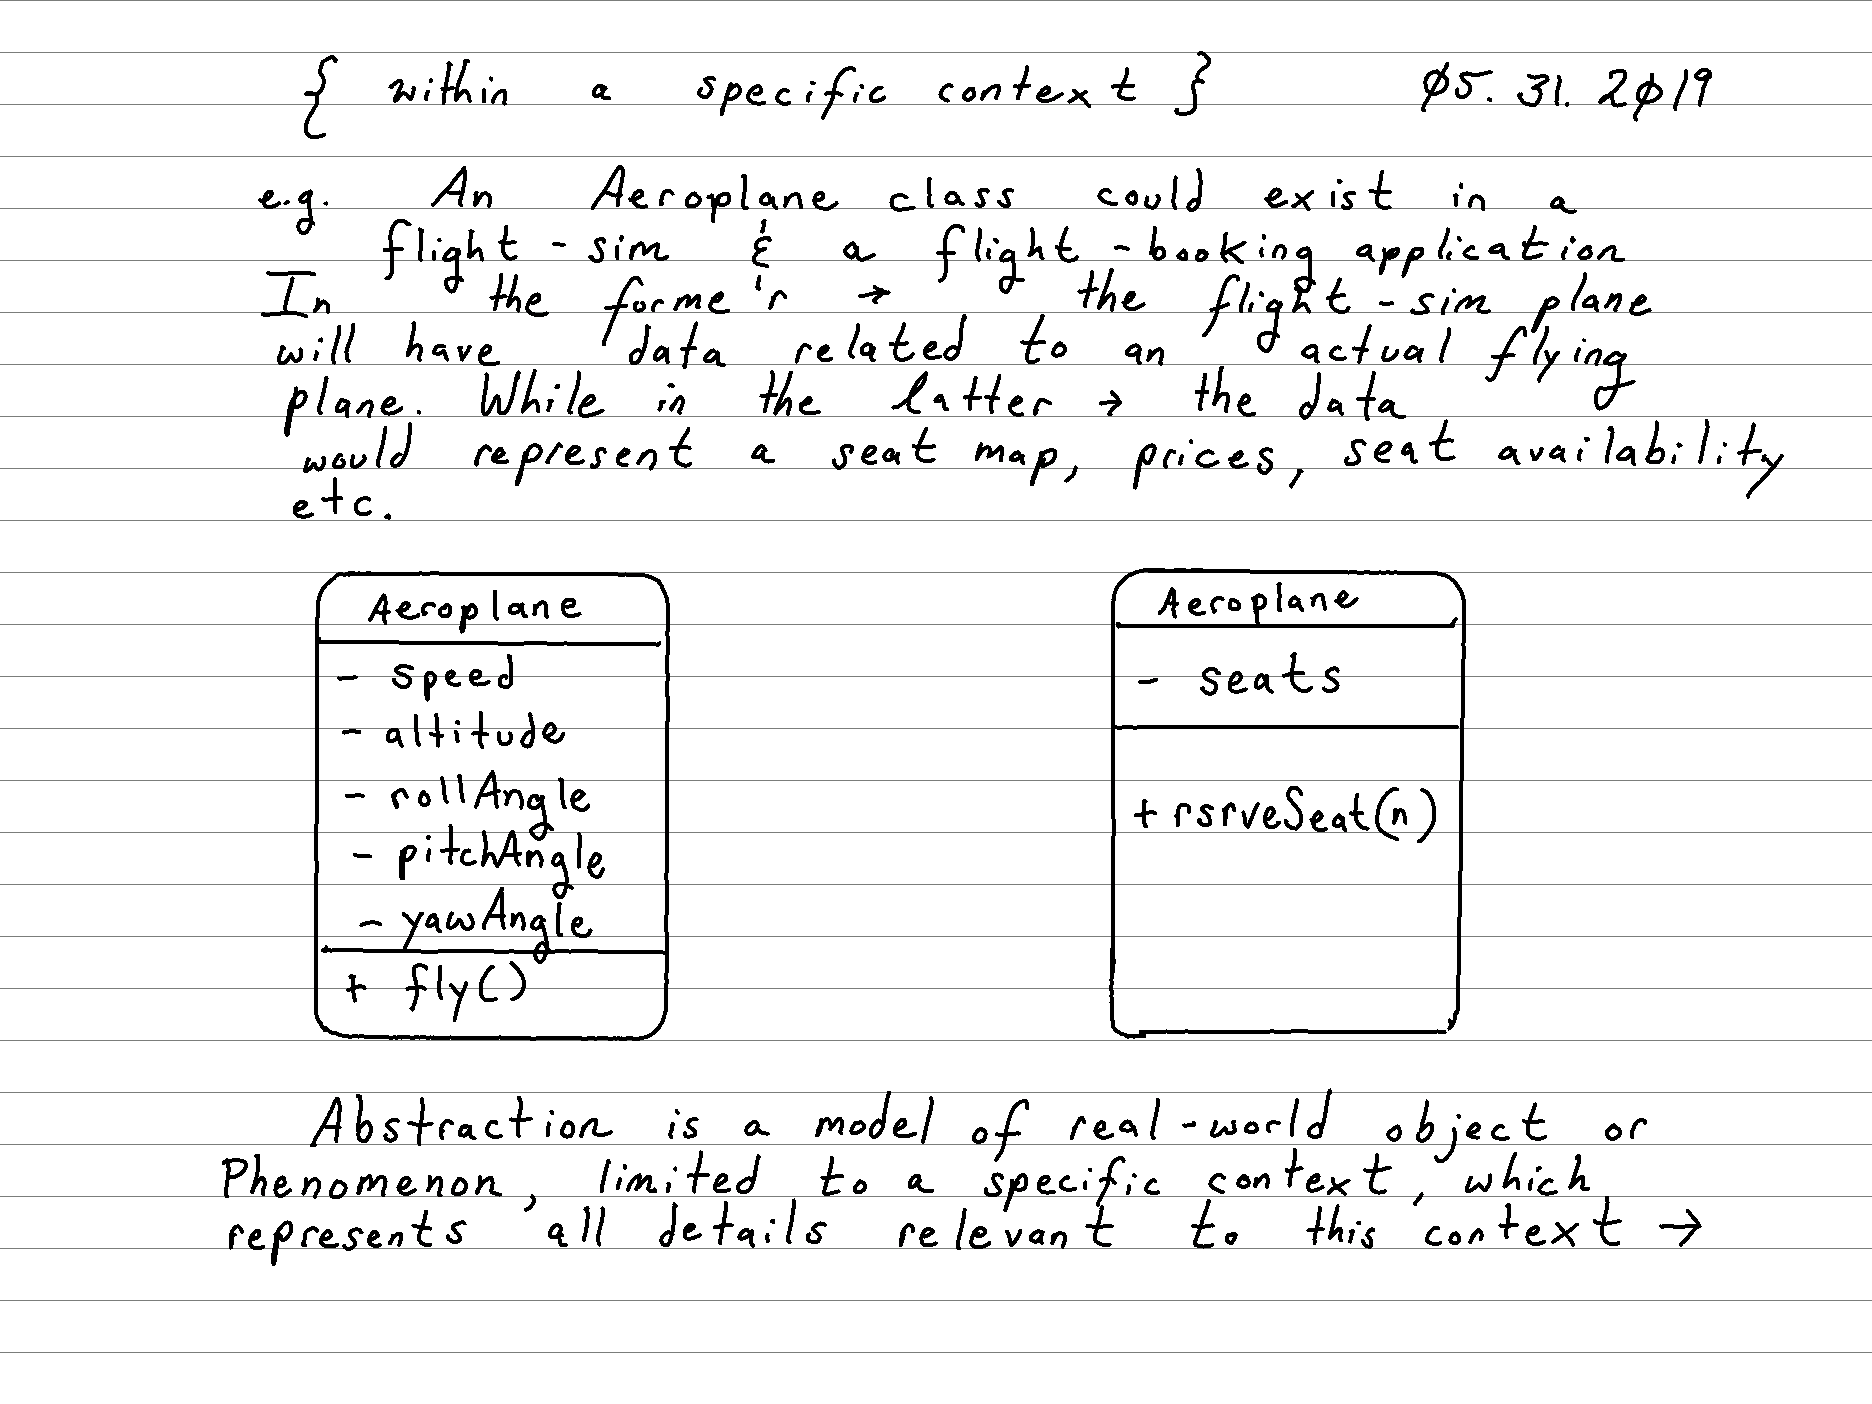 { within a specific context } 05. 31. 2019
e.g. An Aeroplane class could exist in a
flight-sim & a flight-booking application
In the former → the flight-sim plane
will have data related to an actual flying
plane. While in the latter → the data
would represent a seat map, prices, seat availability
etc.
Aeroplane
- speed
- altitude
- rollAngle
- pitchAngle
- yawAngle
+ fly()
Aeroplane
- seats
+ rsrveSeat(n)
Abstraction is a model of real-world object or
Phenomenon, limited to a specific context, which
represents all details relevant to this context →